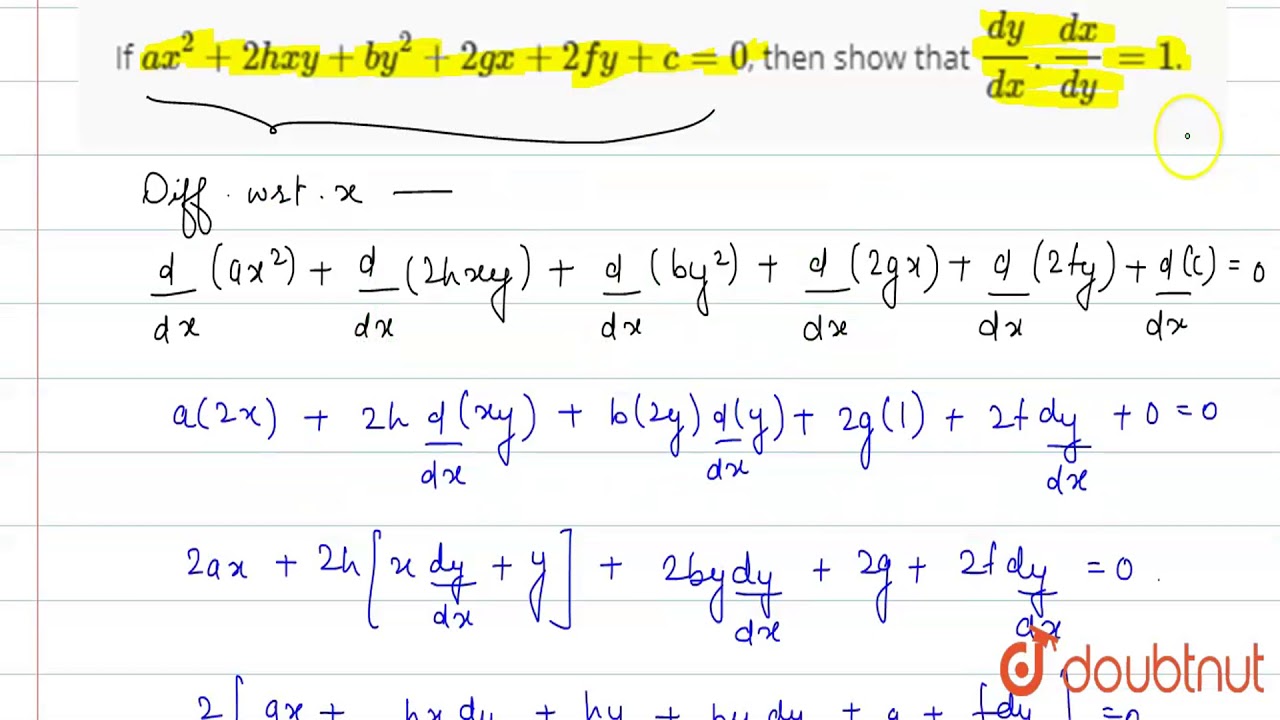 If ax² + 2hxy + by² + 2gx + 2fy + c = 0, then show that dy/dx . dx/dy = 1.
Diff. wrt. x —
d/dx (ax²) + d/dx (2hxy) + d/dx (by²) + d/dx (2gx) + d/dx (2fy) + d/dx (c) = 0
a(2x) + 2h d/dx (xy) + b(2y) d/dx (y) + 2g(1) + 2f dy/dx + 0 = 0
2ax + 2h[x dy/dx + y] + 2by dy/dx + 2g + 2f dy/dx = 0.
doubtnut
2[ax + hx dy + hy + by dy + g + f dy ] = 0